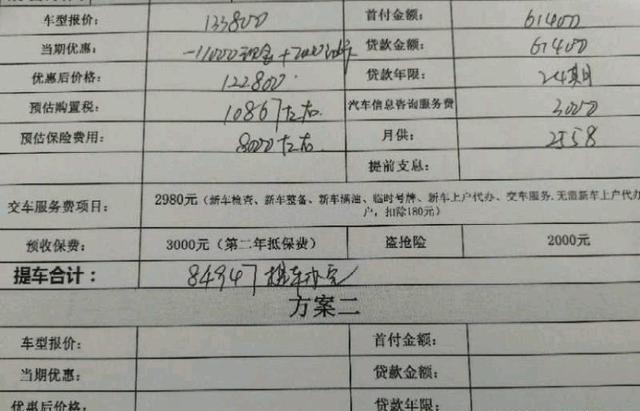 车型报价： 133800 首付金额： 61400
当期优惠： -11000现金+2000 贷款金额： 61400
优惠后价格： 122800 贷款年限： 24期
预估购置税： 10867左右 汽车信息咨询服务费 3000
预估保险费用： 8000左右 月供： 2558
提前支息：
交车服务费项目： 2980元（新车检查、新车整备、新车燃油、临时号牌、新车上户代办、交车服务.无需新车上户代办
户，扣除180元）
预收保费： 3000元（第二年抵保费） 盗抢险 2000元
提车合计： 84947提车办完
方案二
车型报价： 首付金额：
当期优惠： 贷款金额：
优惠后价格： 贷款年限：